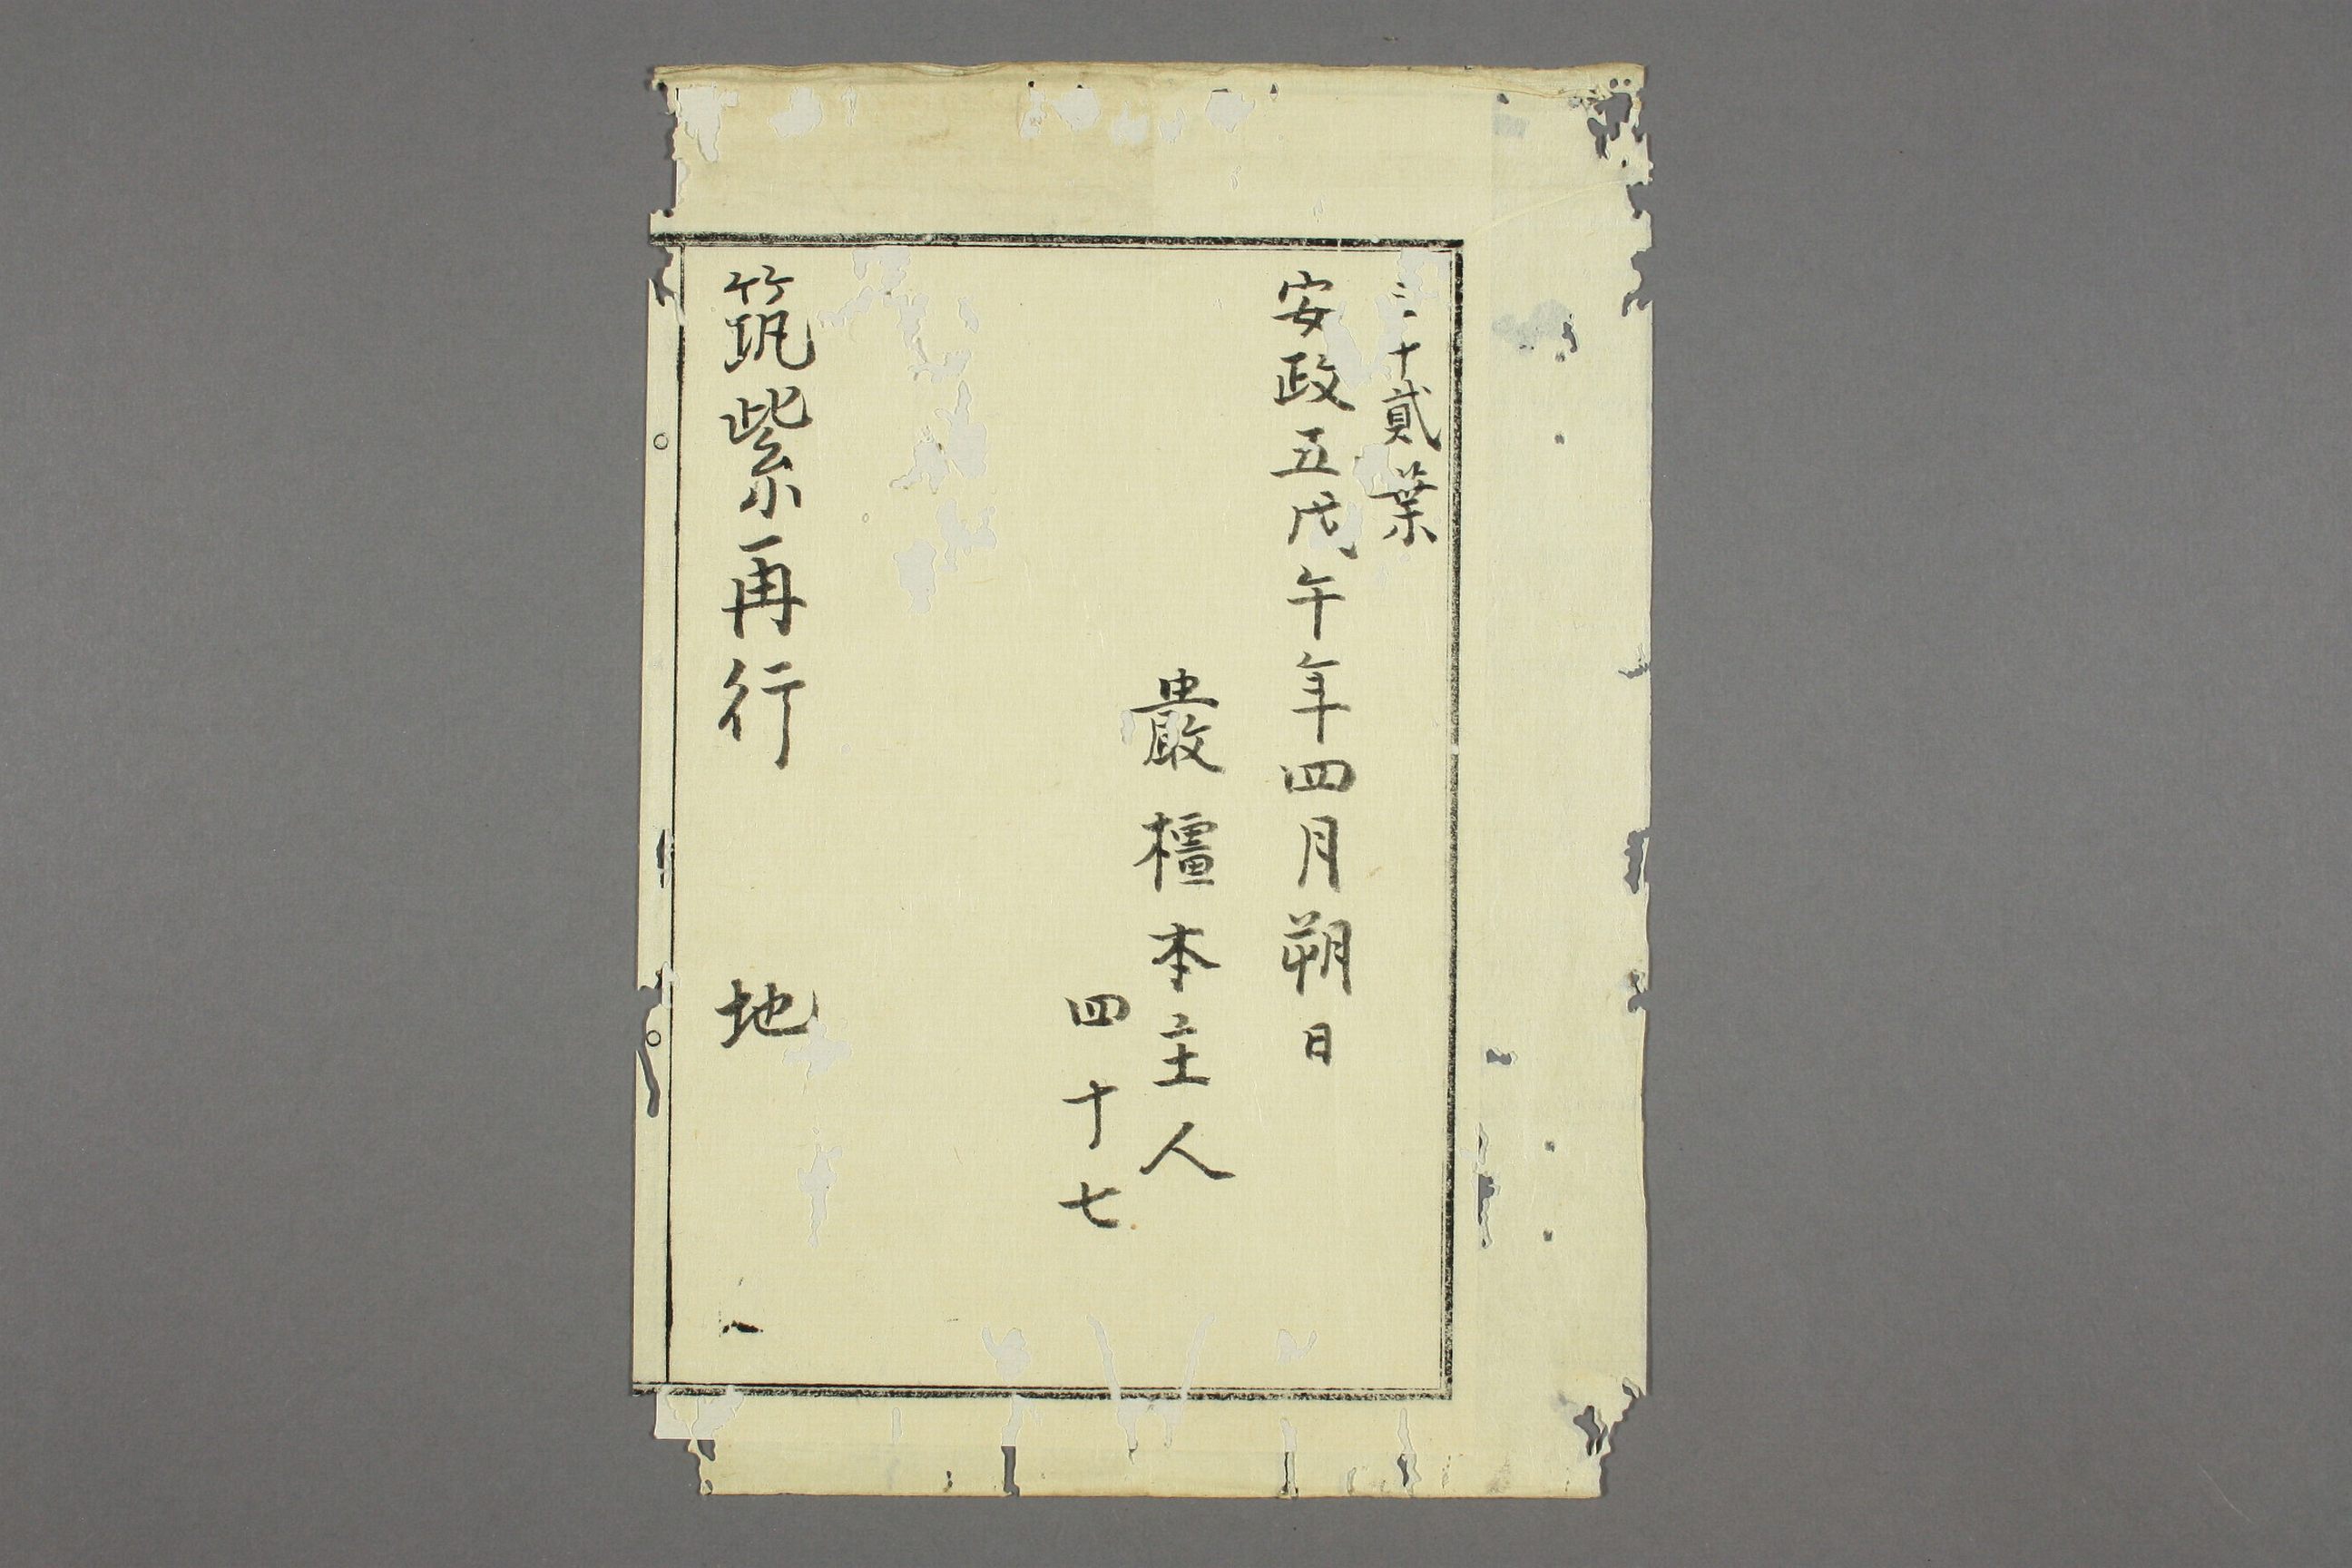 三十貳葉
安政五戊午年四月朔日
嚴橿本主人
四十七
筑紫再行 地